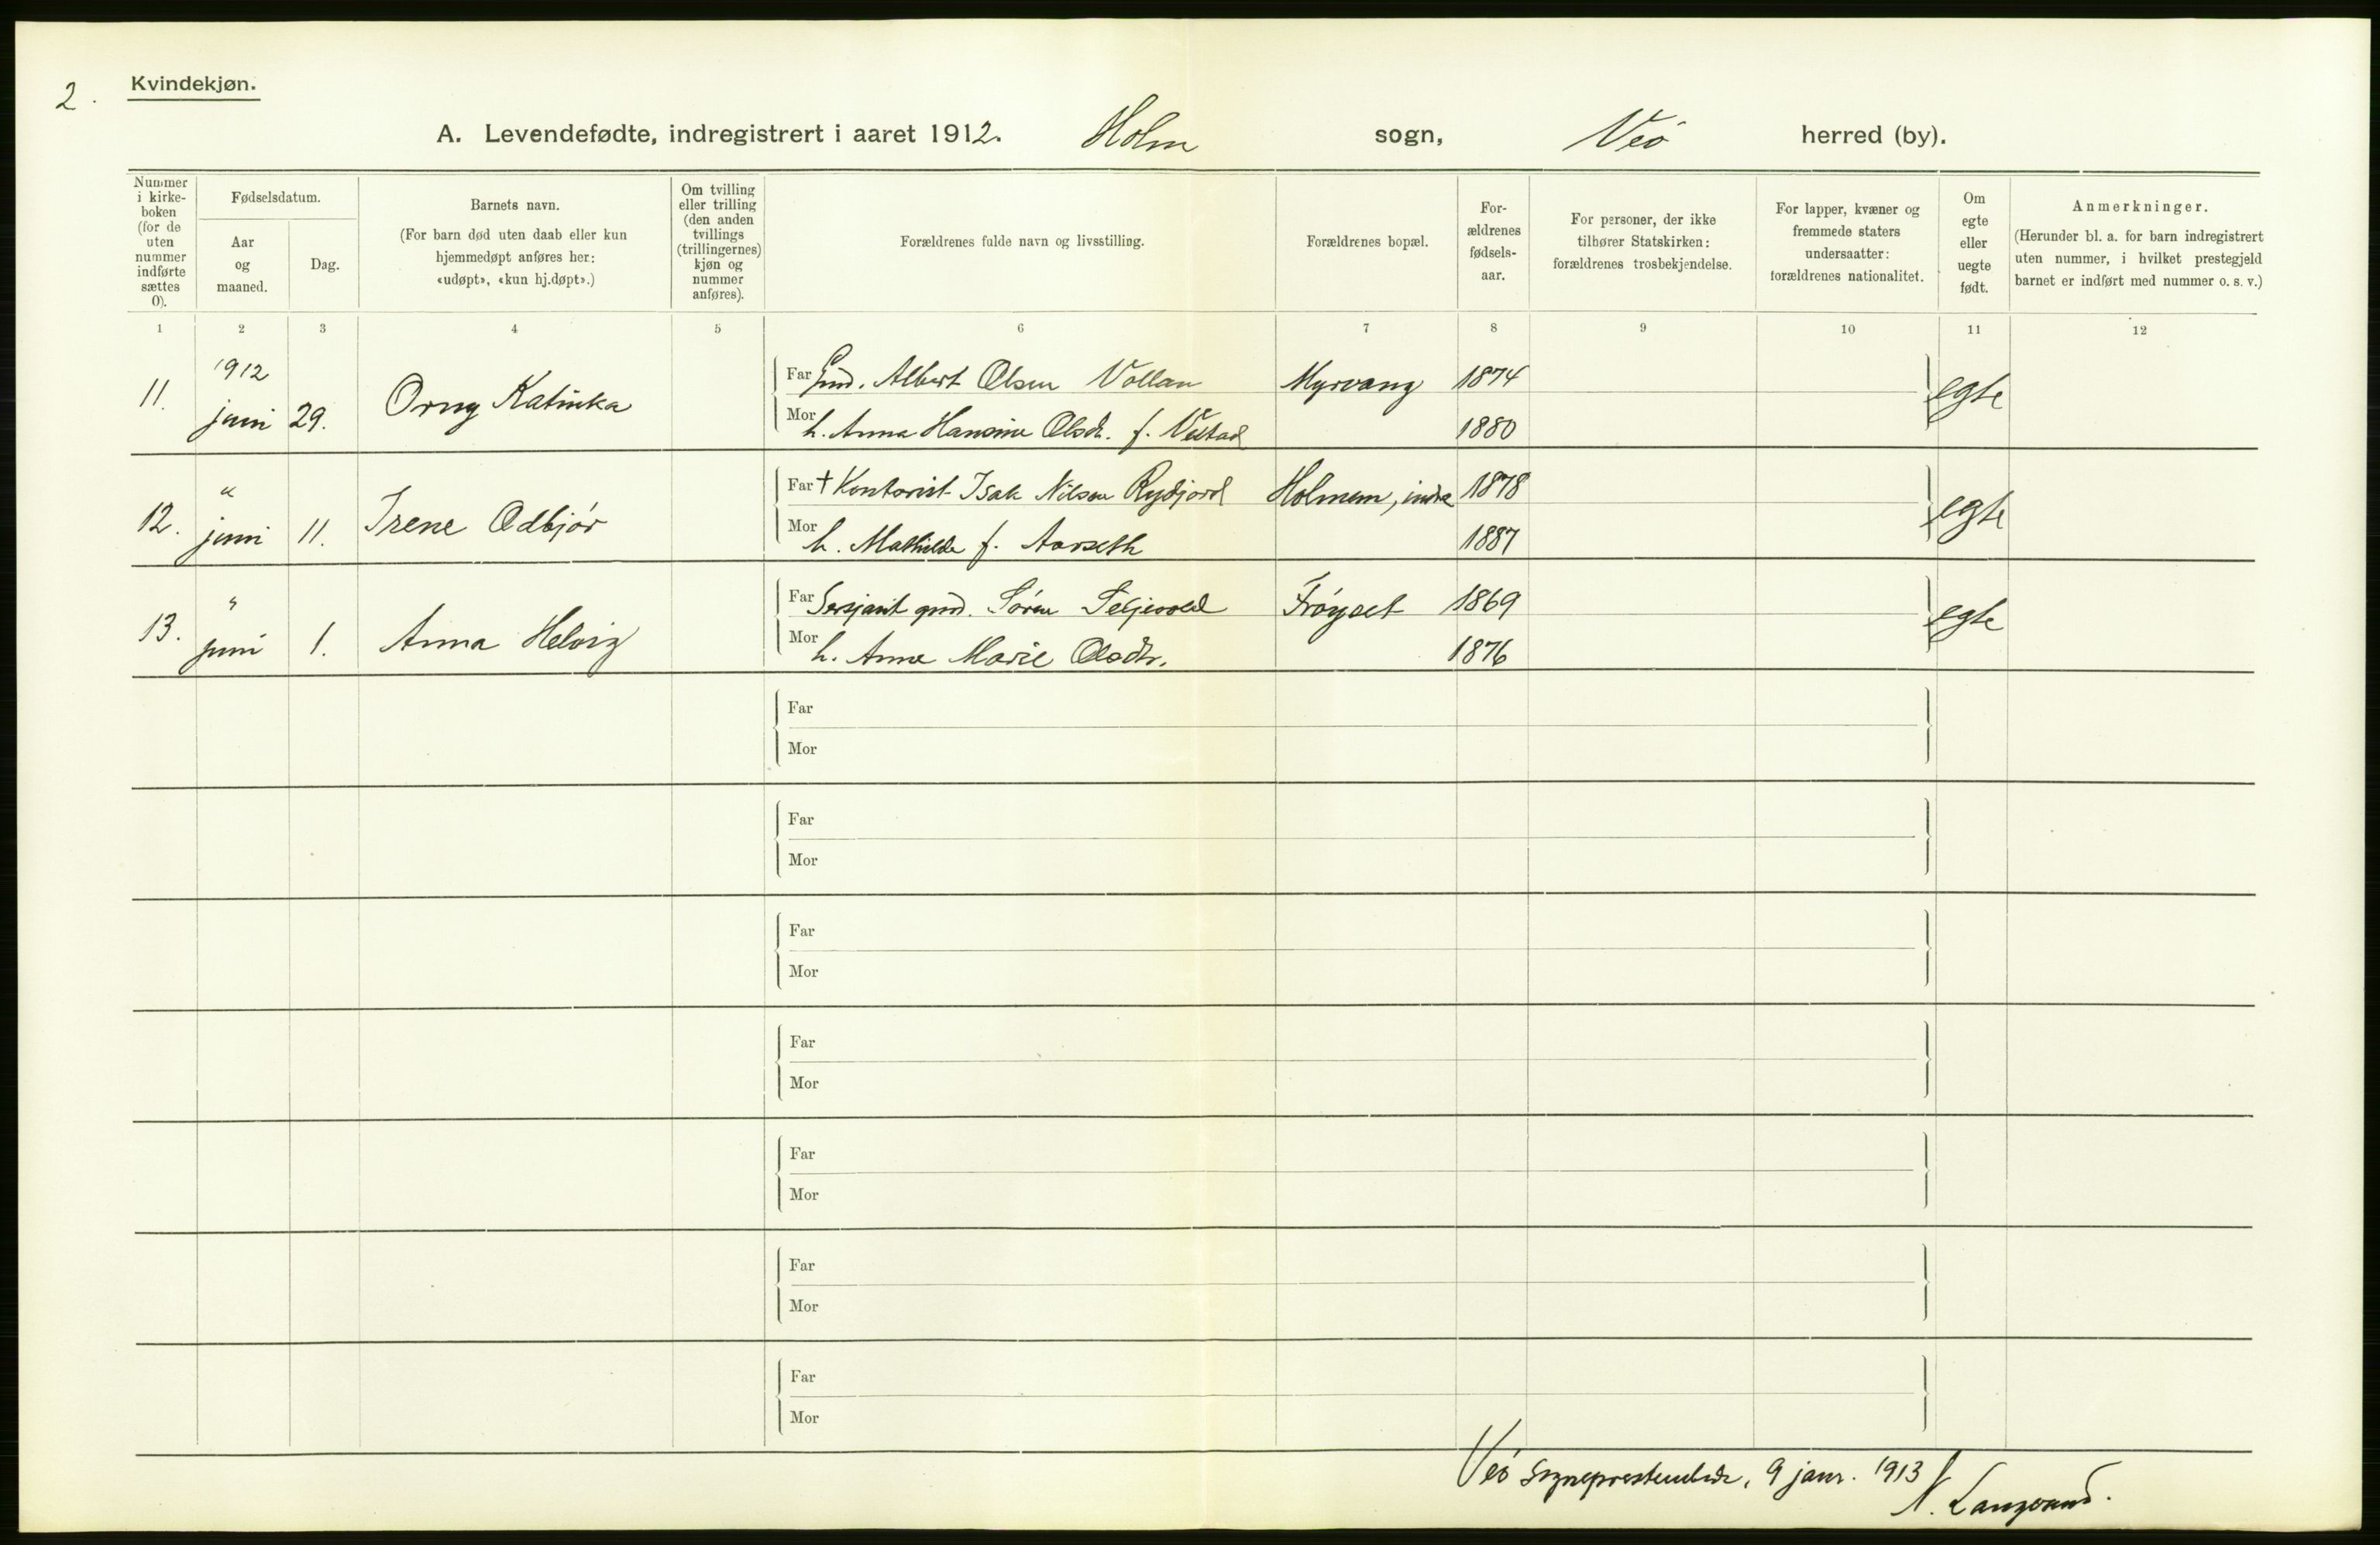 2.
Kvindekjøn.
A. Levendefødte, indregistrert i aaret 1912. Holm sogn, Veö herred (by).
Nummer i kirke-boken (for de uten nummer indførte sættes 0).
Fødselsdatum.
Aar og maaned.
Dag.
Barnets navn.
(For barn død uten daab eller kun hjemmedøpt anføres her: «udøpt», «kun hj.døpt».)
Om tvilling eller trilling (den anden tvillings (trillingernes) kjøn og nummer anføres).
Forældrenes fulde navn og livsstilling.
Forældrenes bopæl.
For-ældrenes fødsels-aar.
For personer, der ikke tilhører Statskirken: forældrenes trosbekjendelse.
For lapper, kvæner og fremmede staters undersaatter: forældrenes nationalitet.
Om egte eller uegte født.
Anmerkninger.
(Herunder bl. a. for barn indregistrert uten nummer, i hvilket prestegjeld barnet er indført med nummer o. s. v.)
1 2 3 4 5 6 7 8 9 10 11 12
11. 1912 juni 29. Orny Katinka
Far Gmd. Albert Olsen Vollan Myrvang 1874 egte
Mor h. Anna Hansine Olsdr. f. 1880
12. " juni 11. Irene Odbjör
Far + Kontorist Isak Nilsen Rydjord Holmem, indre 1878 egte
Mor h. Mathilde f. Aarseth 1887
13. " juni 1. Anna Helvig
Far Sersjant gmd. Sören Seljevold Fröyset 1869 egte
Mor h. Anne Marie Olsdtr. 1876
Far
Mor
Far
Mor
Far
Mor
Far
Mor
Far
Mor
Far
Mor
Far
Mor
Veö sogneprestembede, 9 janr. 1913
N. Langvand.